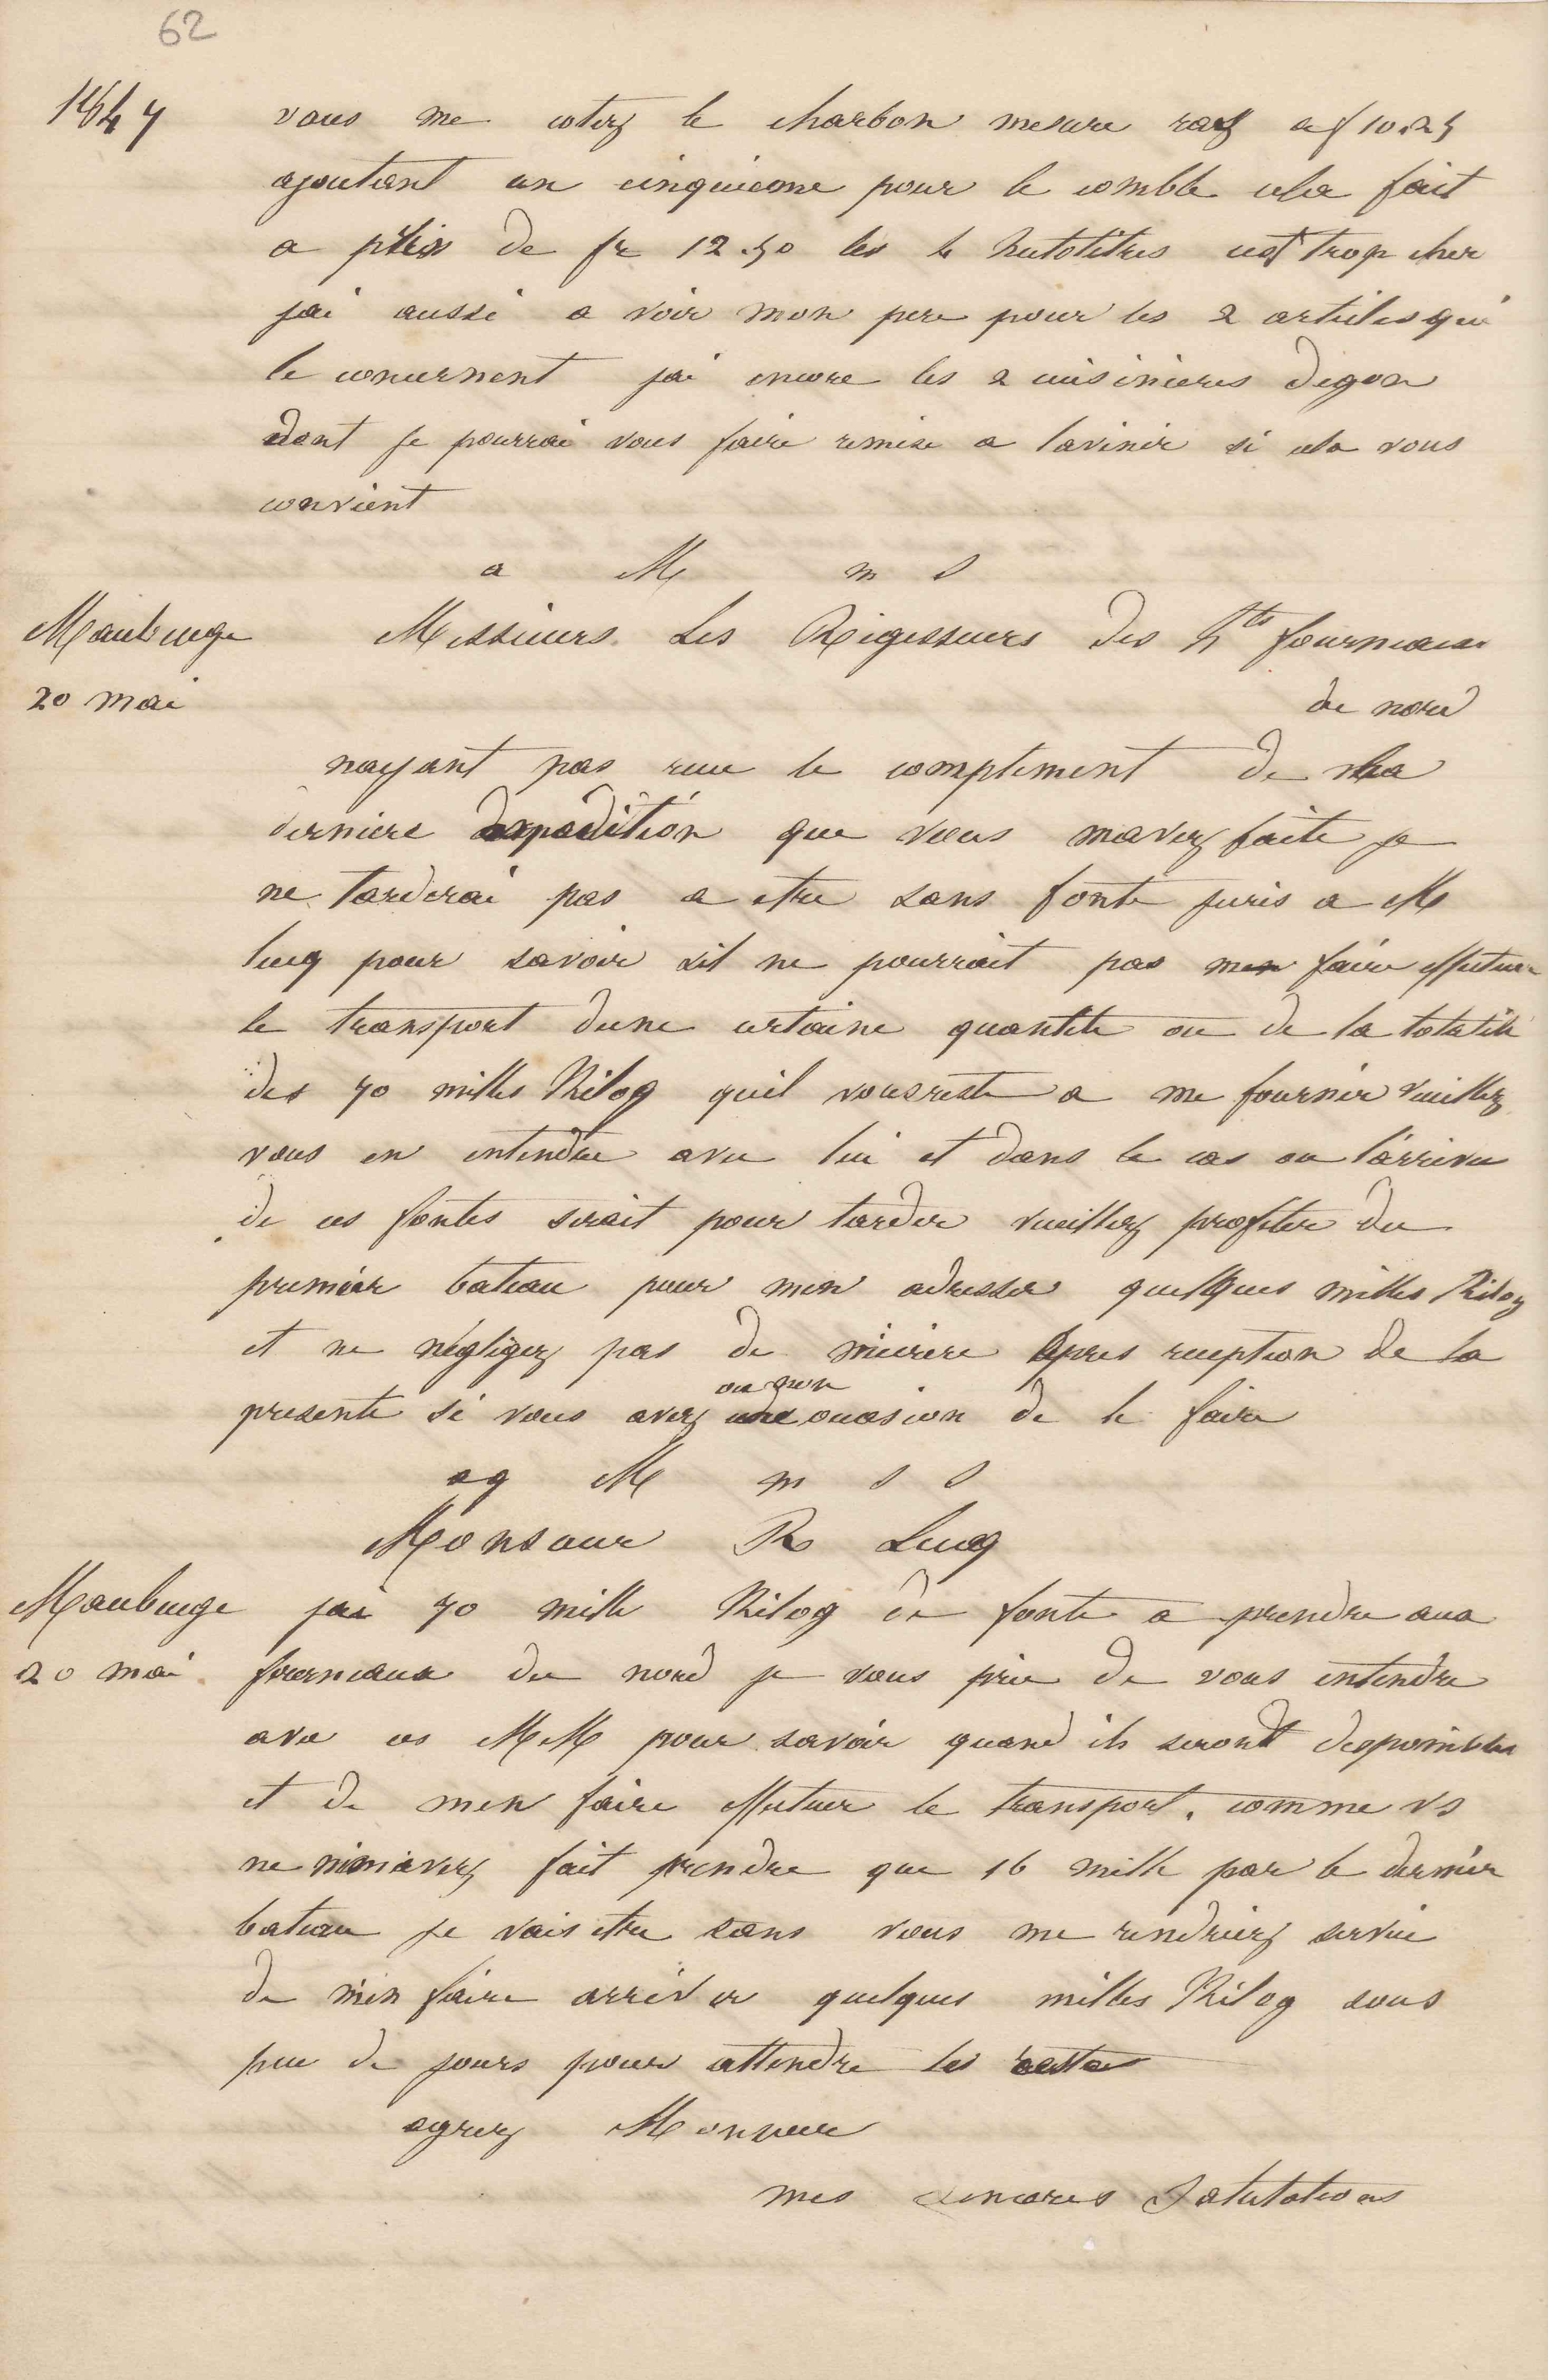 62
1847
vous me cotez le charbon mesure raz a f 10.25
ajoutant un cinquieme pour le comble cela fait
a plein de fr 12.50 les h hectolitres cest trop cher
jai aussi a voir mon pere pour les 2 articles qui
le concernent jai encore les 2 cuisinieres
dont je pourrai vous faire remise a lavenir si cela vous
convient
a M m S
Maubeuge Messieurs Les Regisseurs des hts fourneaux
20 mai du nord
nayant pas recu le complement de la
derniere expedition que vous mavez faite je
ne tarderai pas a etre sans fonte jecris a M
lucq pour savoir sil ne pourrait pas men faire effectuer
le transport dune certaine quantite ou de la totalite
des 70 milles Kilog quil vous reste a me fournir veuillez
vous en entendre avec lui et dans le cas ou l'arrivee
de ces fontes serait pour tarder veuillez profiter du
premier bateau pour men adresser quelques milles Kilog
et ne négligez pas de mécrire apres reception de la
ou non
presente si vous avez une occasion de le faire
ag M m s S
Monsieur R Lucq
Maubeuge jai 70 mille Kilog de fonte a prendre aux
20 mai fourneaux du nord je vous prie de vous entendre
avec ces MM pour savoir quand ils seront disponibles
et de men faire effectuer le transport. comme vs
ne mavez fait prendre que 16 mille par le dernier
bateau je vais etre sans vous me rendriez service
de m'en faire arriver quelques milles Kilog sous
peu de jours pour attendre les restes
agreez Monsieur
mes sinceres Salutations